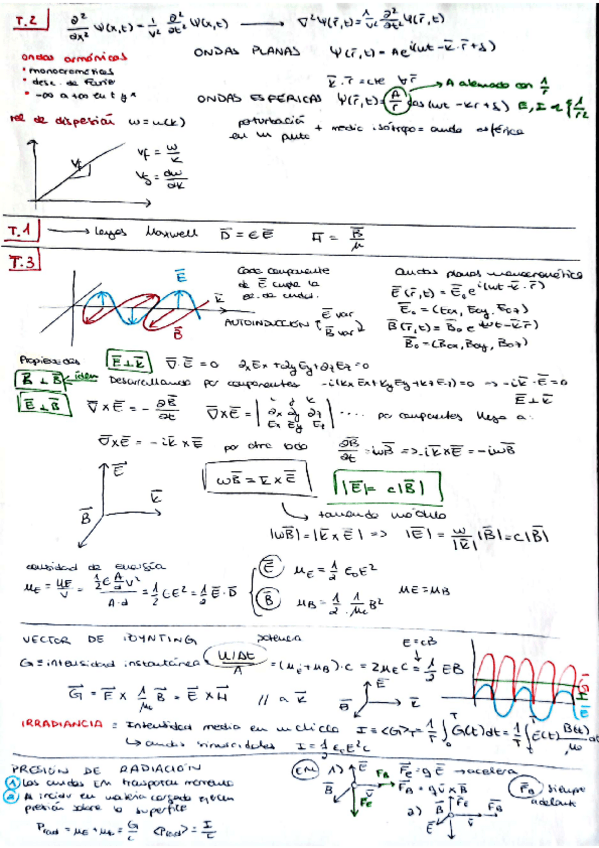 T.2 ∂²/∂x² Ψ(x,t) = 1/v² ∂²/∂t² Ψ(x,t) → ∇²Ψ(r̄,t) = 1/v² ∂²/∂t² Ψ(r̄,t)
ondas armónicas
• monocromáticas
• desc. de Fourier
• -∞ a +∞ en t y x
ONDAS PLANAS Ψ(r̄,t) = A e^i(ωt - k̄·r̄ + δ)
k̄·r̄ = cte ∀r̄
A atenuado con 1/r
ONDAS ESFÉRICAS Ψ(r̄,t) = A/r cos(ωt - kr + δ) E, I
rel de dispersión ω = ω(k)
perturbación en un punto + medio isótropo = onda esférica
Vf
Vf = ω/k
Vg = dω/dk
T.1 → Leyes Maxwell D̄ = ε Ē H̄ = B̄/μ
T.3
Ē
k̄
B̄
Cada componente
de Ē cumple la
ec. de ondas
AUTOINDUCCIÓN Ē var B̄ var
Ondas planas monocromática
Ē(r̄,t) = Ē₀ e^i(ωt - k̄·r̄)
Ē₀ = (E₀x, E₀y, E₀z)
B̄(r̄,t) = B̄₀ e^i(ωt - k̄·r̄)
B̄₀ = (B₀x, B₀y, B₀z)
Propiedades Ē ⊥ k̄ ∇̄·Ē = 0 ∂xEx + ∂yEy + ∂zEz = 0
B̄ ⊥ k̄ ← idem Desarrollando por componentes -i(kxEx + kyEy + kzEz) = 0 → -ik̄·Ē = 0
Ē ⊥ k̄
Ē ⊥ B̄
∇̄×Ē = -∂B̄/∂t ∇̄×Ē = | i j k ∂x ∂y ∂z Ex Ey Ez | .... por componentes llego a:
∇̄×Ē = -ik̄×Ē por otro lado ∂B̄/∂t = iωB̄ ⇒ -ik̄×Ē = -iωB̄
Ē
k̄
B̄
ωB̄ = k̄×Ē
|Ē| = c|B̄|
tomando módulo
|ωB̄| = |k̄×Ē| ⇒ |Ē| = ω/|k̄| |B̄| = c|B̄|
densidad de energía
= 1/2 εE² = 1/2 Ē·D̄
Ē μE = 1/2 ε₀E²
B̄ μB = 1/2 · 1/μ₀ B²
μE = μB
VECTOR DE POYNTING
potencia
G ≡ intensidad instantánea = (U/Δt)/A = (μE + μB)·c = 2μE c
E = cB
Ḡ = Ē × 1/μ B̄ = Ē × H̄ // a k̄
Ē
B̄
k̄
IRRADIANCIA = Intensidad media en un ciclo I = <G>T = 1/T ∫₀ᵀ G(t)dt = 1/T ∫ E(t) B(t)/μ₀ dt
↳ ondas sinusoidales I = 1/2 ε₀E²c
PRESIÓN DE RADIACIÓN
1 Las ondas EM transportan momento
2 A incidir en materia cargada ejercen
presión sobre la superficie
Prad = μE + μB = G/c <Prad> = I/c
EM 1) F̄E = qĒ → acelera
F̄B = qv̄×B̄
F̄B siempre
adelante
2)